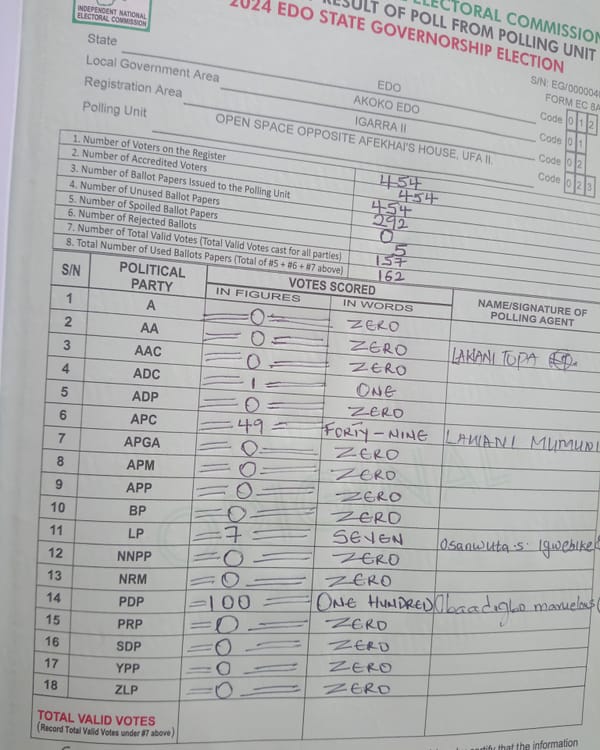 INDEPENDENT NATIONAL
ELECTORAL COMMISSION
ELECTORAL COMMISSION
RESULT OF POLL FROM POLLING UNIT
2024 EDO STATE GOVERNORSHIP ELECTION
S/N: EG/0000040
FORM EC 8A
State EDO Code 0 1 2
Local Government Area AKOKO EDO Code 0 1
Registration Area IGARRA II Code 0 2
Polling Unit OPEN SPACE OPPOSITE AFEKHAI'S HOUSE, UFA II. Code 0 2 3
1. Number of Voters on the Register 454
2. Number of Accredited Voters 454
3. Number of Ballot Papers Issued to the Polling Unit 454
4. Number of Unused Ballot Papers 292
5. Number of Spoiled Ballot Papers 0
6. Number of Rejected Ballots 5
7. Number of Total Valid Votes (Total Valid Votes cast for all parties) 157
8. Total Number of Used Ballots Papers (Total of #5 + #6 + #7 above) 162
S/N POLITICAL PARTY VOTES SCORED NAME/SIGNATURE OF POLLING AGENT
IN FIGURES IN WORDS
1 A 0 ZERO
2 AA 0 ZERO
3 AAC 0 ZERO LAWANI TOPA
4 ADC 1 ONE
5 ADP 0 ZERO
6 APC 49 FORTY-NINE LAWANI MUMUNI
7 APGA 0 ZERO
8 APM 0 ZERO
9 APP 0 ZERO
10 BP 0 ZERO
11 LP 7 SEVEN Osanwuta.s. Igwebike
12 NNPP 0 ZERO
13 NRM 0 ZERO
14 PDP 100 ONE HUNDRED
15 PRP 0 ZERO
16 SDP 0 ZERO
17 YPP 0 ZERO
18 ZLP 0 ZERO
TOTAL VALID VOTES
(Record Total Valid Votes under #7 above)
that the information